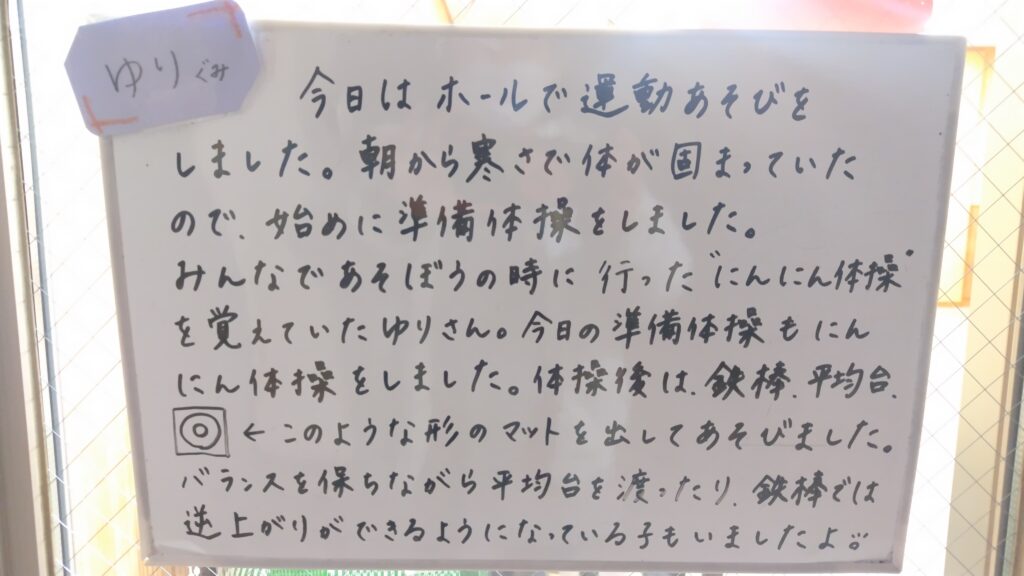 ゆりぐみ
今日は ホールで 運動あそびを
しました。朝から寒さで体が固まっていた
ので、始めに準備体操をしました。
みんなであそぼうの時に行った"にんにん体操"
を覚えていたゆりさん。今日の準備体操もにん
にん体操をしました。体操後は、鉄棒、平均台、
←このような形のマットを出してあそびました。
バランスを保ちながら平均台を渡ったり、鉄棒では
逆上がりができるようになっている子もいましたよ